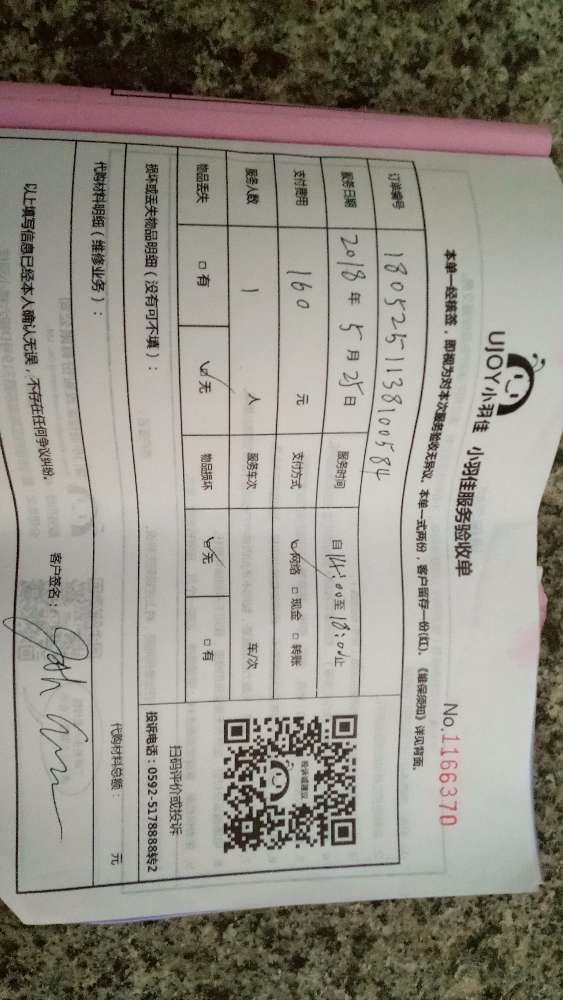 UJOY小羽佳 小羽佳服务验收单
No.1166370
本单一经核签，即视为对本次服务验收无异议。本单一式两份，客户留存一份(红)。《维保须知》详见背面。
订单编号 1805251138100584
服务日期 2018年5月25日 服务时间 自14:00至18:00止
支付费用 160 元 支付方式 ☑网络 □现金 □转账
服务人数 1 人 服务车次 车/次
物品丢失 □有 ☑无 物品损坏 ☑无 □有
损坏或丢失物品明细（没有可不填）：
投诉建议
扫码评价或投诉
投诉电话：0592-5178888转2
代购材料明细（维修业务）：
代购材料总额： 元
以上填写信息已经本人确认无误，不存在任何争议纠纷。
客户签名：